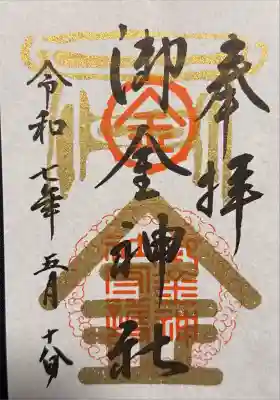 奉拝
御金神社
令和七年 五月 十八日
金